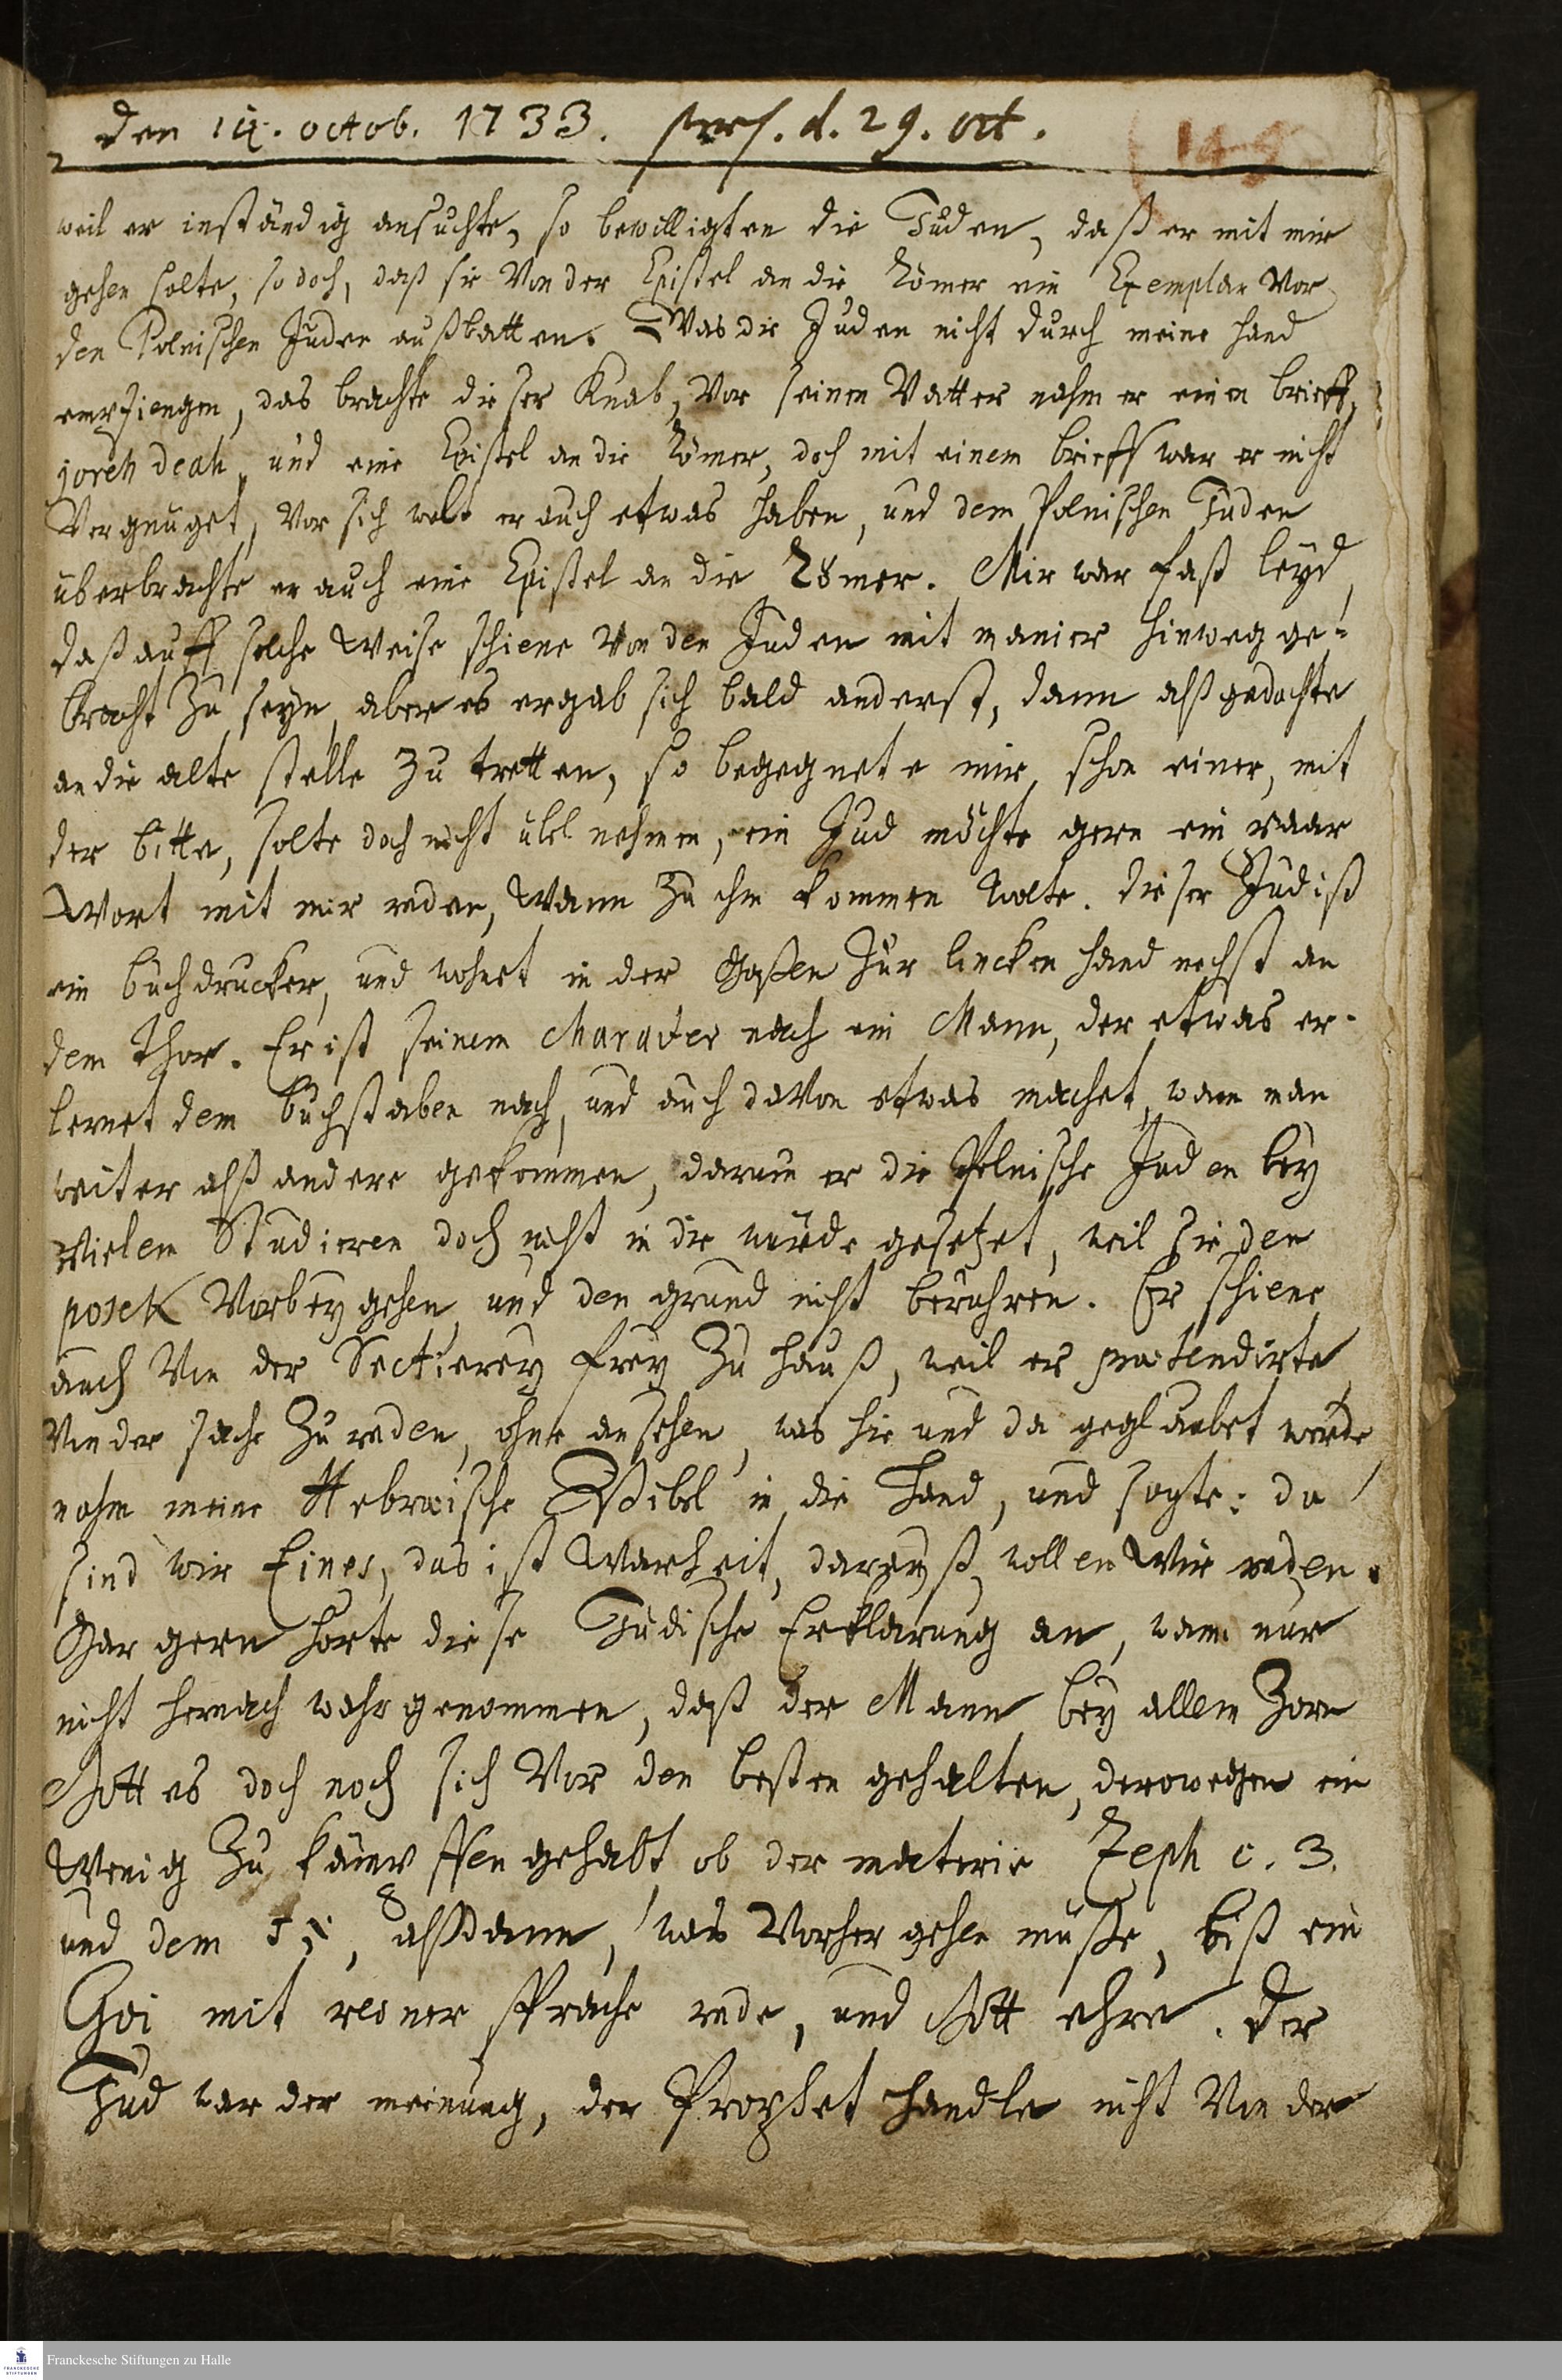 den 14. octob. 1733. præs. d. 29. oct.
149
weil er inständig ansuchte, so bewilligten die Juden, daß er mit mir
gehen solte, so doch, daß sie Von der Epistel an die Römer ein Exemplar Vor
den Polnischen Juden außbatten. Was die Juden nicht durch meine Hand
empfiengen, das brachte dieser Knab, Vor seinen Vatter nahm er einen brieff,
joreh deah, und eine Epistel an die Römer, doch mit einem brieff war er nicht
Vergnüget, Vor sich wolt er auch etwas haben, und dem Polnischen Juden
überbrachte er auch eine Epistel an die Römer. Mir war fast leyd,
daß auff solche Weise schiene Von den Juden mit manier hinweg ge-
bracht zu seyn, aber es ergab sich bald anderst, dann alß gedachte
an die alte stelle zu tretten, so begegnete mir schon einer, mit
der bitte, solte doch nicht übel nehmen, ein Jud möchte gern ein paar
Wort mit mir reden, Wann zu ihm kommen wolte. dieser Jud ist
ein buchdrucker, und wohnet in der Gaßen zur lincken Hand nechst an
dem Thor. Er ist seinem Character nach ein Mann, der etwas er-
lernet dem buchstaben nach, und auch davon etwas machet, wann man
weiter alß andere gekommen, darum er die Polnische Juden bey
Vielem Studieren doch nicht in die würde gesetzet, weil sie den
posek Vorbey gehen und den grund nicht berühren. Er schiene
auch Von der Sectirerey frey zu Hauß, weil er prætendirte
Von der sache zu reden, ohne ansehen, was hie und da geglaubet werde,
nahm meine Hebræische Bibel in die Hand, und sagte: da
sind wir Eines, das ist Warheit, darauß wollen Wir reden.
Gar gern hörte diese Jüdische Erklärung an, wann nur
nicht hernach wahrgenommen, daß der Mann bey allem Zorn
Gottes doch noch sich Vor den besten gehalten, derowegen ein
Wenig zu kämpffen gehabt ob der materie Zeph c. 3.
und dem אז, alßdann, was Vorher gehen müße, biß ein
Goi mit reiner sprache rede, und Gott ehre. Der
Jud war der meinung, der Prophet handle nicht Von der
Franckesche Stiftungen zu Halle